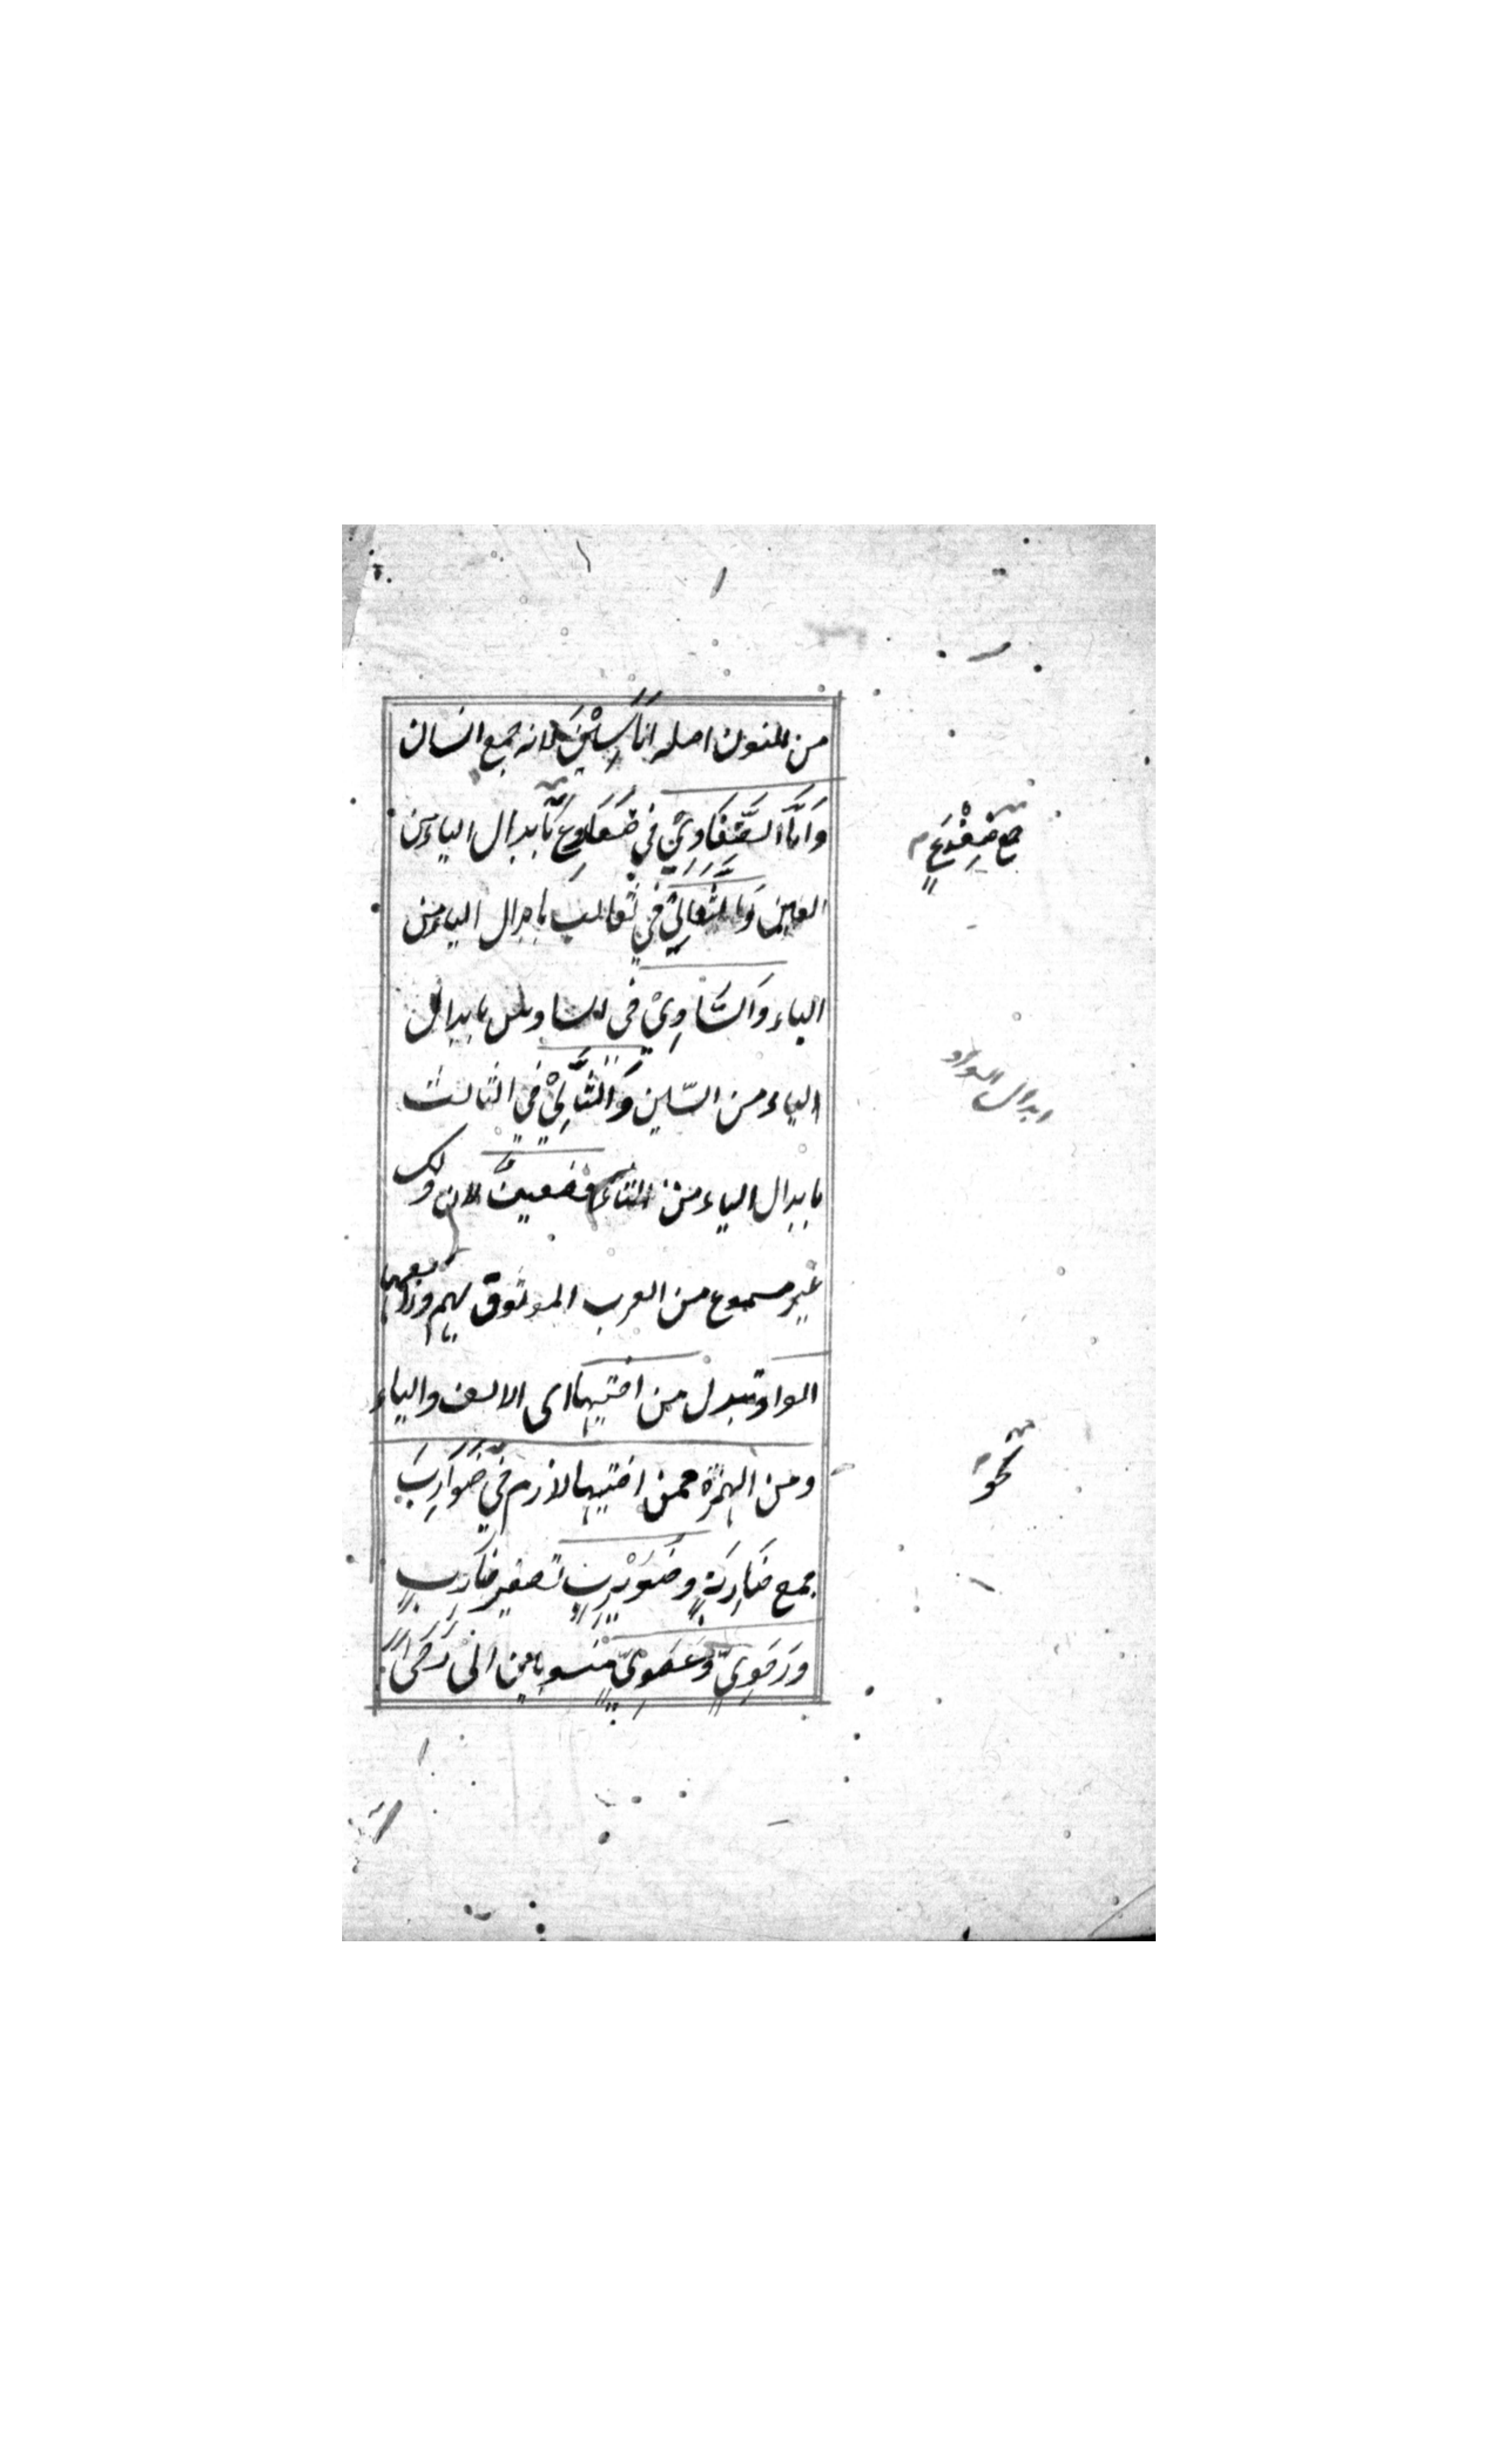 من النون اصله اَنَاسِيْنَ لانه جمع انسان
وَاَمَّا الضَّفَادِيْ فِي ضَفَادِعِ بابدال الياء من
العين وَالثَّعَالِيْ فِي ثعالب بابدال الياء من
الباء وَالسَّادِيْ فى السادس بابدال
الياء من السّين وَالثَّالِيْ فِي الثالث
بابدال الياء من الثاء فضعيفٌ لان ذلك
غير مسموع من العرب الموثوق بهم
الواو تبدل من اختيها اى الالف والياء
ومن الهمزة فمن اختيها لازم فى ضَوَارِبَ
جمع ضَارِبَةٍ وضُوَيْرِبٍ تصغير ضَارِبٍ
ورَحَوِيٍّ وَعَصَوِيٍّ منسوبا من الى رَحًى
جمع ضِفْدَعٍ
ابدال الواو
نحو